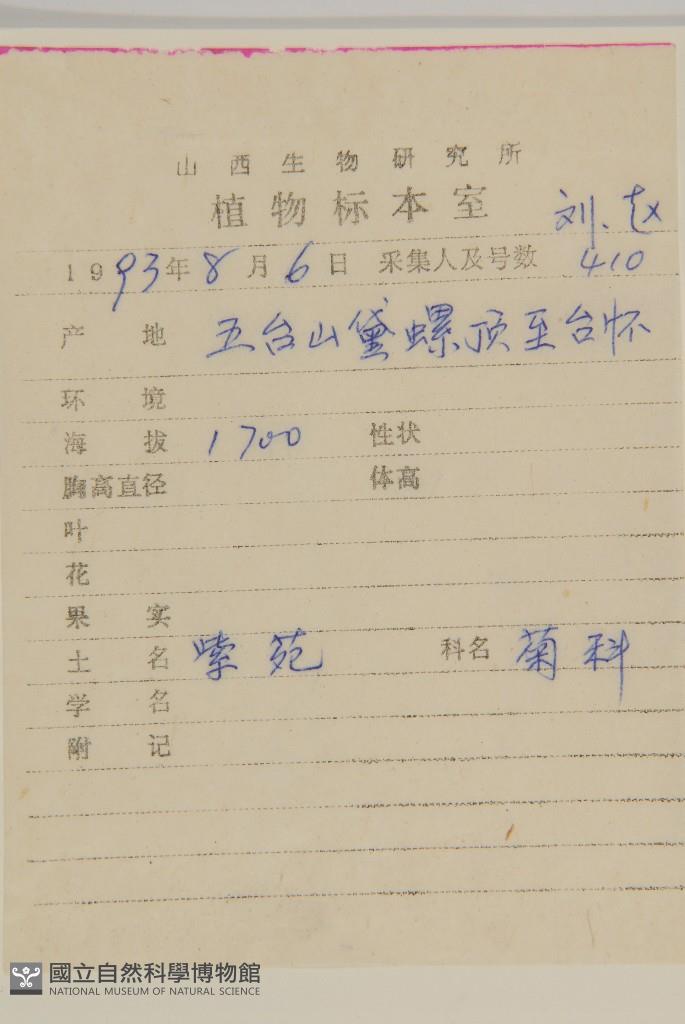 山西生物研究所
植物标本室
刘、赵
1993年8月6日 采集人及号数 410
产地 五台山黛螺顶至台怀
环境
海拔 1700 性状
胸高直径 体高
叶
花
果实
土名 紫苑 科名 菊科
学名
附记
國立自然科學博物館
NATIONAL MUSEUM OF NATURAL SCIENCE